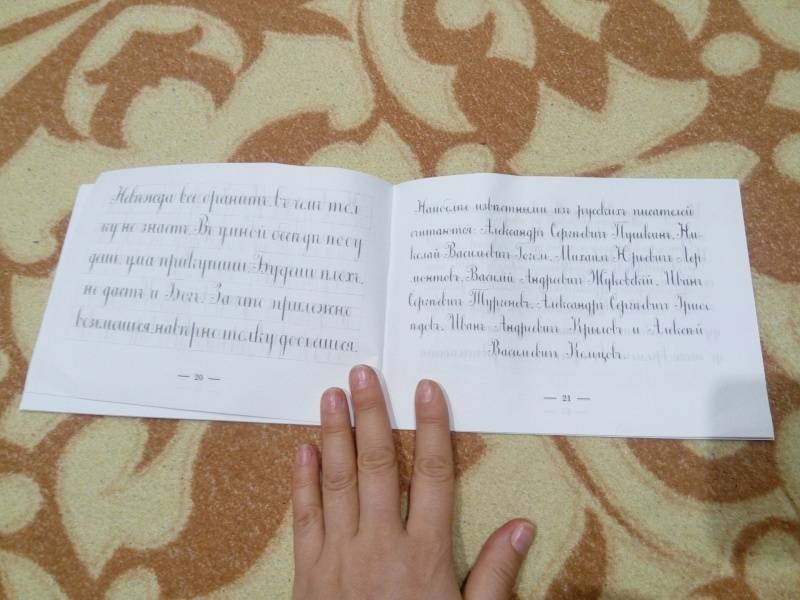 Невѣжда все бранитъ, въ чемъ тол
ку не знаетъ. Въ умной бесѣдѣ побу
дешь, ума прикупишь. Будешь плохъ,
не дастъ и Богъ. За что прилежно
возмешься, навѣрно толку добьешься.
— 20 —
Наиболѣе извѣстными изъ русскихъ писателей
считаются: Александръ Сергѣевичъ Пушкинъ, Ни-
колай Васильевичъ Гоголь, Михаилъ Юрьевичъ Лер
монтовъ, Василій Андреевичъ Жуковскій, Иванъ
Сергѣевичъ Тургеневъ, Александръ Сергѣевичъ Грибо
ѣдовъ, Иванъ Андреевичъ Крыловъ и Алексѣй
Васильевичъ Кольцовъ.
— 21 —